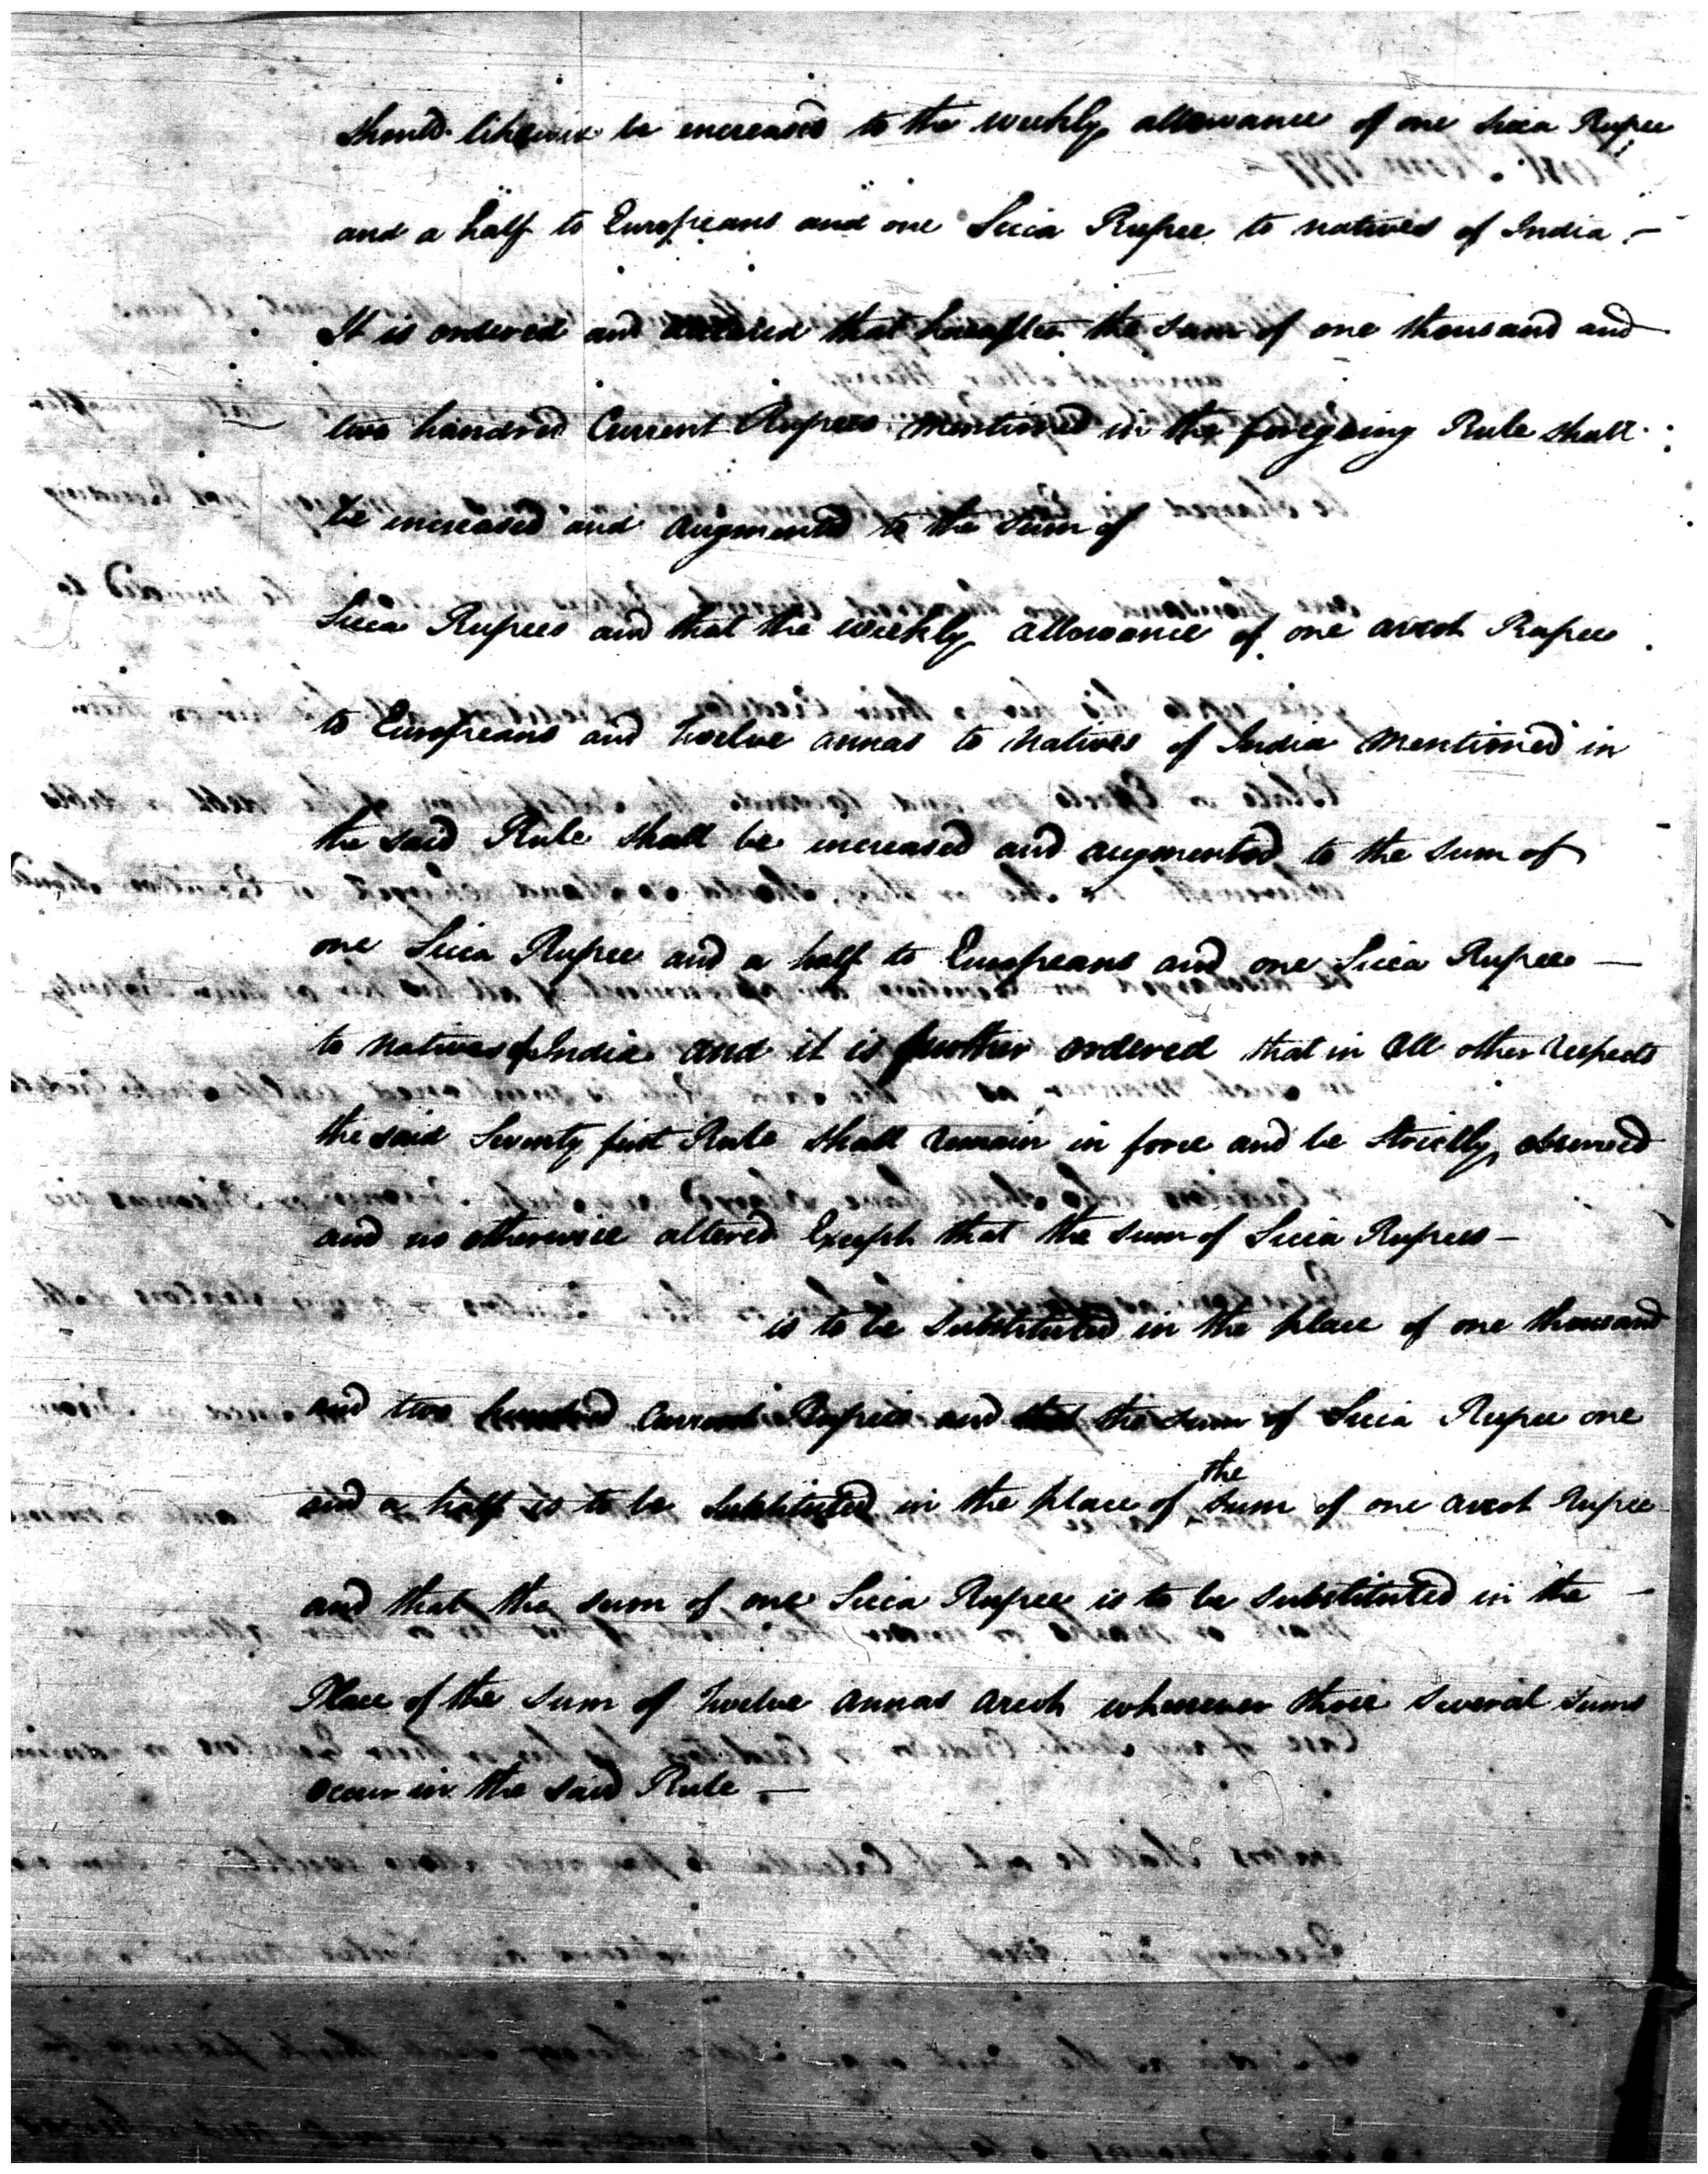 should likewise be increased to the weekly allowance of one Sicca Rupee
and a half to Europeans and one Sicca Rupee to natives of India. —
It is ordered and declared that hereafter the sum of one thousand and
two hundred Current Rupees mentioned in the foregoing Rule shall
be increased and augmented to the sum of
Sicca Rupees and that the weekly allowance of one arcot Rupee
to Europeans and twelve annas to natives of India mentioned in
the said Rule shall be increased and augmented to the sum of
one Sicca Rupee and a half to Europeans and one Sicca Rupee —
to natives of India and it is further ordered that in all other respects
the said Seventy first Rule shall remain in force and be strictly observed
and no otherwise altered Except that the sum of Sicca Rupees —
is to be substituted in the place of one thousand
and two hundred Current Rupees and that the sum of Sicca Rupee one
and a half is to be substituted in the place of the sum of one arcot Rupee
and that the sum of one Sicca Rupee is to be substituted in the —
Place of the sum of twelve annas arcot wherever these several sums
occur in the said Rule. —